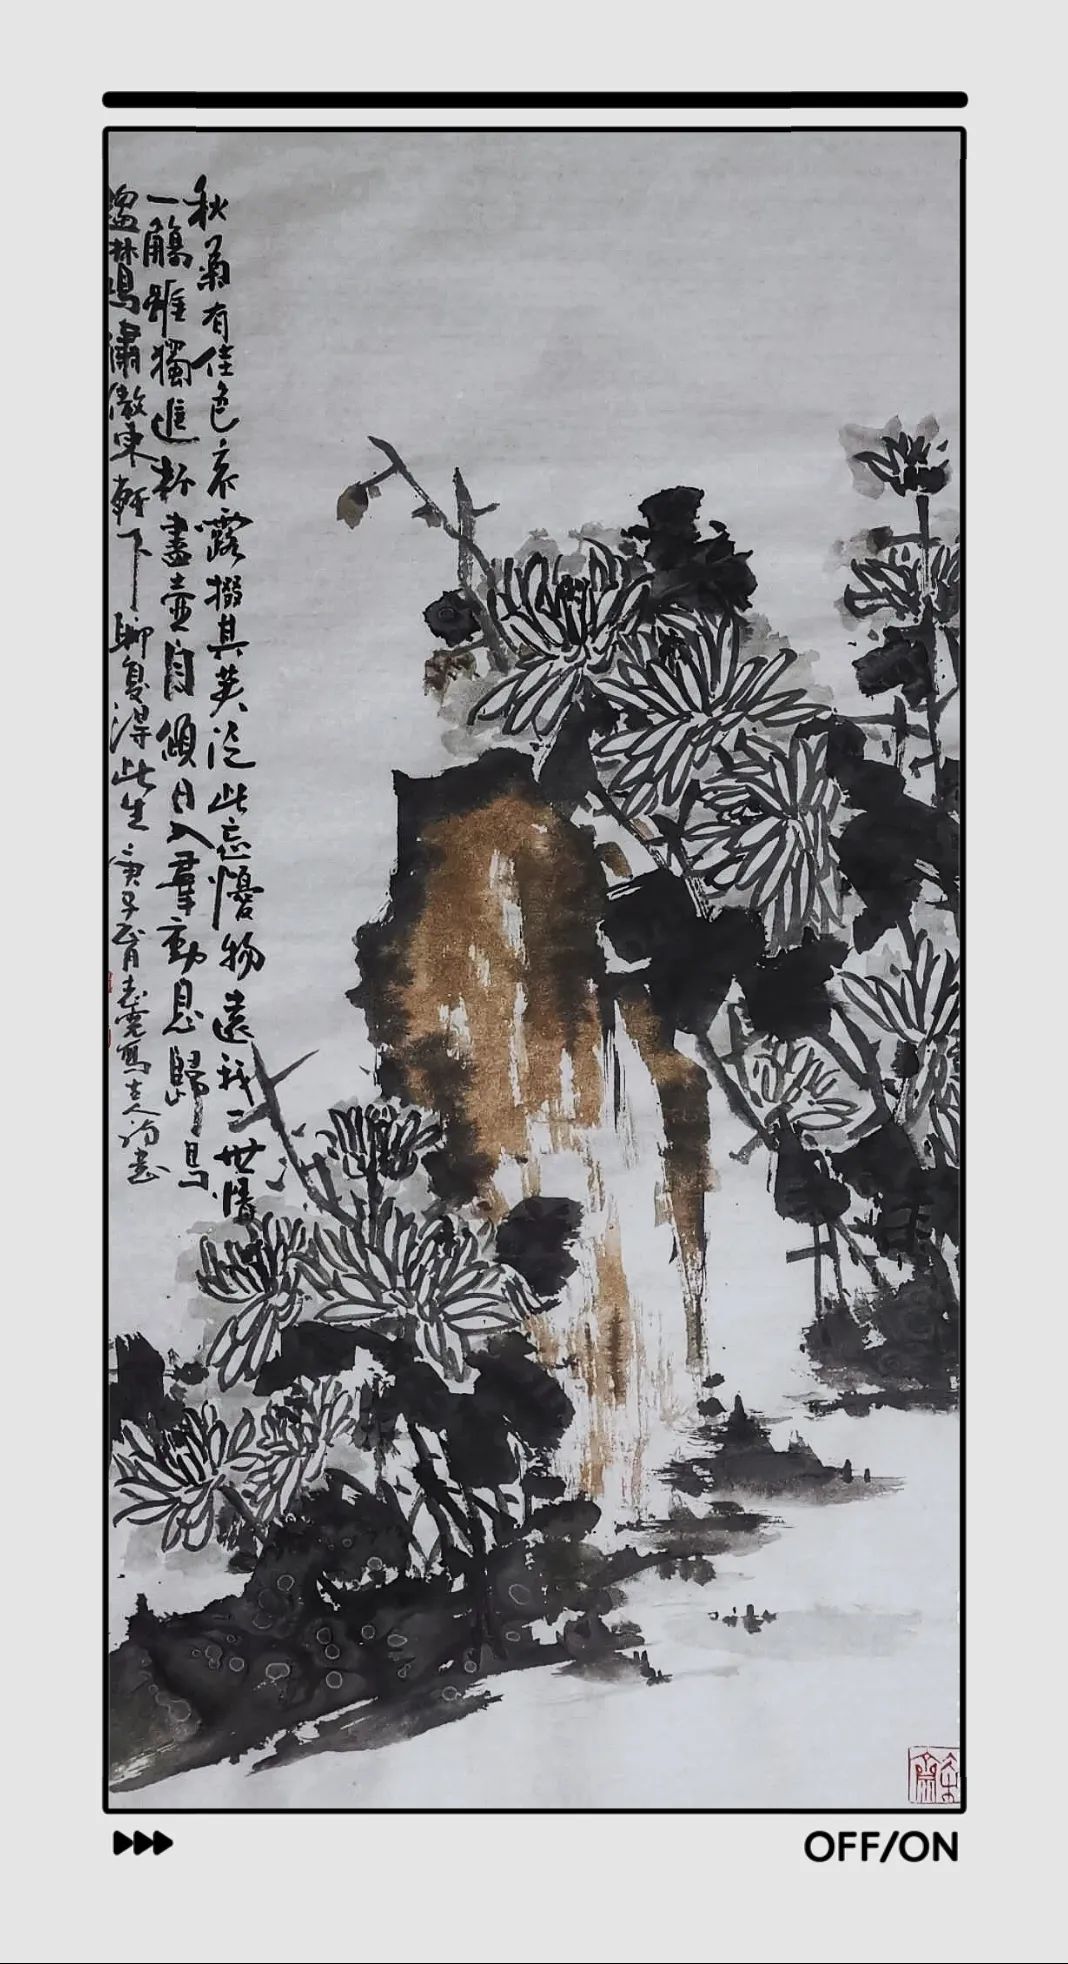 秋菊有佳色裛露掇其英泛此忘憂物遠我二世情
一觴雖獨進杯盡壺自傾日入羣動息歸鳥
趨林鳴嘯傲東軒下聊復得此生 庚子 月 寫古人詩意
OFF/ON